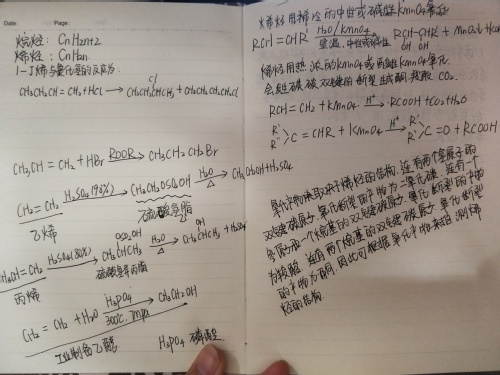 Date:    Page:
烷烃: CnH2n+2
烯烃: CnH2n
1-丁烯与氯化氢的反应为
Cl
CH3CH2CH=CH2+HCl → CH3CH2CHCH3 + CH3CH2CH2CH2Cl
CH3CH=CH2+HBr ROOR→ CH3CH2CH2Br
CH2=CH2 H2SO4(98%)→ CH3CH2OSO3H H2O→ △ CH3CH2OH+H2SO4
乙烯 硫酸氢乙酯
OSO3H OH
CH3CH=CH2 H2SO4(80%)→ CH3CHCH3 H2O→ △ CH3CHCH3+H2SO4
丙烯 硫酸氢异丙酯
CH2=CH2+H2O H3PO4→ 300℃. 7MPa CH3CH2OH
工业制备乙醇 H3PO4 磷酸
烯烃用稀冷的中性或碱性KMnO4氧化
RCH=CHR' H2O/KMnO4→ RCH-CHR'+MnO2↓+KOH
OH OH
烯烃用热浓的KMnO4或酸性KMnO4氧化
会使碳碳双键的断裂生成酮、羧酸 CO2.
RCH=CH2+KMnO4 H+→ RCOOH+CO2+H2O
R' R'' C=CHR+KMnO4 H+→ R' R'' C=O+RCOOH
氧化产物取决于烯烃的结构, 连有两个氢原子的
双键碳原子, 氧化断裂的产物为二氧化碳, 连有一个
氢原子和一个烃基的双键碳原子氧化断裂的产物
为羧酸, 连有两个烃基的双键碳原子, 氧化断裂
的产物为酮, 因此可根据氧化产物来推测烯
烃的结构.